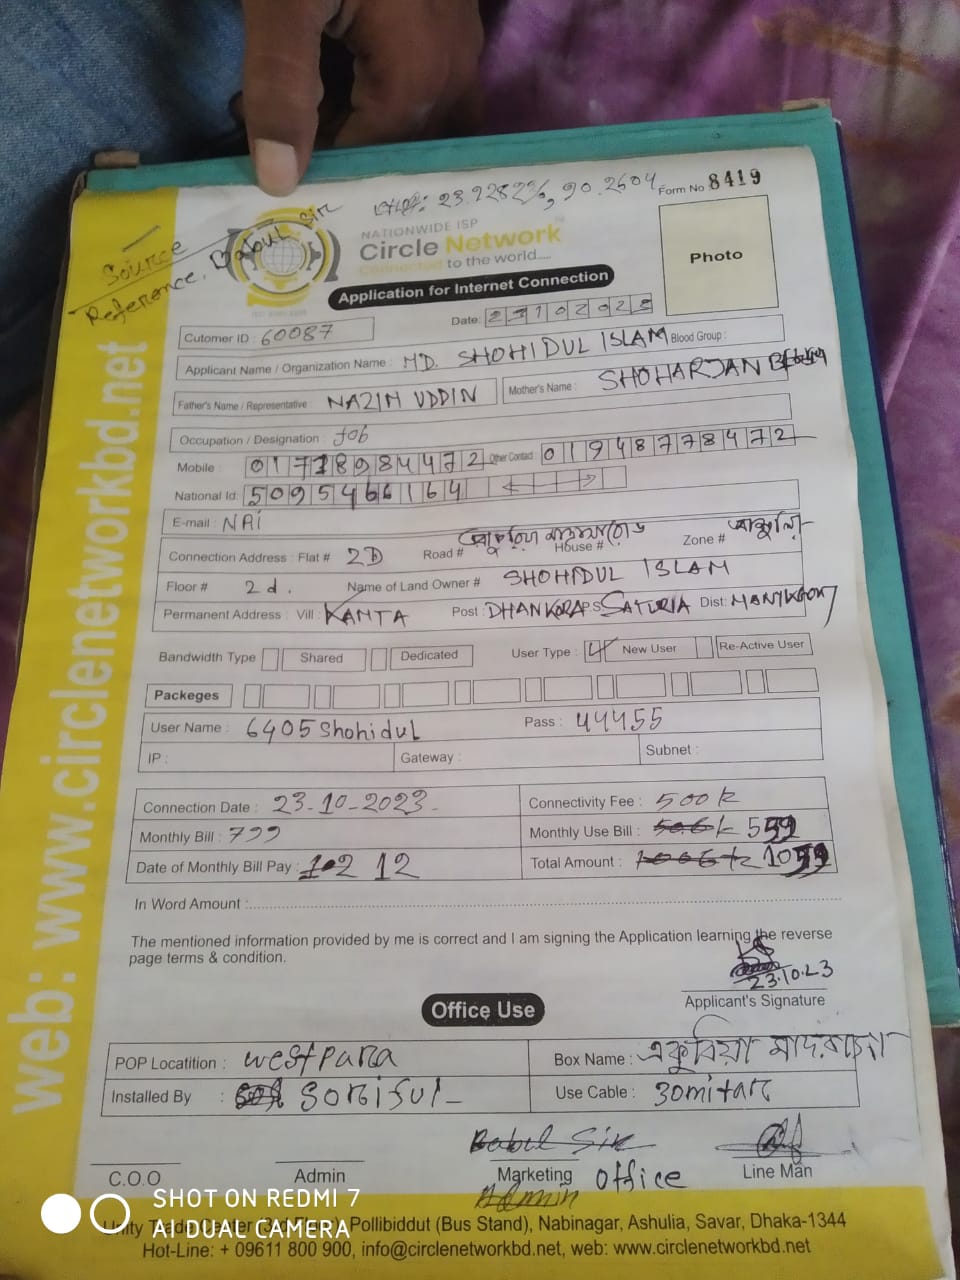 Form No 8419
Source
Reference. Babul Sir
NATIONWIDE ISP
Circle Network
Connected to the world.....
Photo
Application for Internet Connection
Date: 23102023
Cutomer ID : 60087
Applicant Name / Organization Name : MD. SHOHIDUL ISLAM Blood Group :
Father's Name / Representative : NAZIM UDDIN Mother's Name : SHOHARJAN
Occupation / Designation : Job
Mobile : 01718984472 Other Contact : 01948778472
National Id: 5095466164
E-mail : NAI
Connection Address : Flat # 2D Road # House # Zone #
Floor # 2d. Name of Land Owner # SHOHIDUL ISLAM
Permanent Address : Vill : KAMTA Post : DHANKORA P.S SATURIA Dist:
Bandwidth Type Shared Dedicated User Type : New User Re-Active User
Packeges
User Name : 6405Shohidul Pass : 44455
IP : Gateway : Subnet :
Connection Date : 23-10-2023 Connectivity Fee : 500
Monthly Bill : 799 Monthly Use Bill : 559
Date of Monthly Bill Pay : 12 Total Amount : 1059
In Word Amount :
The mentioned information provided by me is correct and I am signing the Application learning the reverse
page terms & condition.
23.10.23
Applicant's Signature
Office Use
POP Locatition : westpara Box Name : একুবিয়া মাদরাসা
Installed By : Soriful Use Cable : 30mitar
Babul Sir
C.O.O Admin Marketing office Line Man
Admin
web: www.circlenetworkbd.net
Pollibiddut (Bus Stand), Nabinagar, Ashulia, Savar, Dhaka-1344
Hot-Line: + 09611 800 900, info@circlenetworkbd.net, web: www.circlenetworkbd.net
SHOT ON REDMI 7
AI DUAL CAMERA